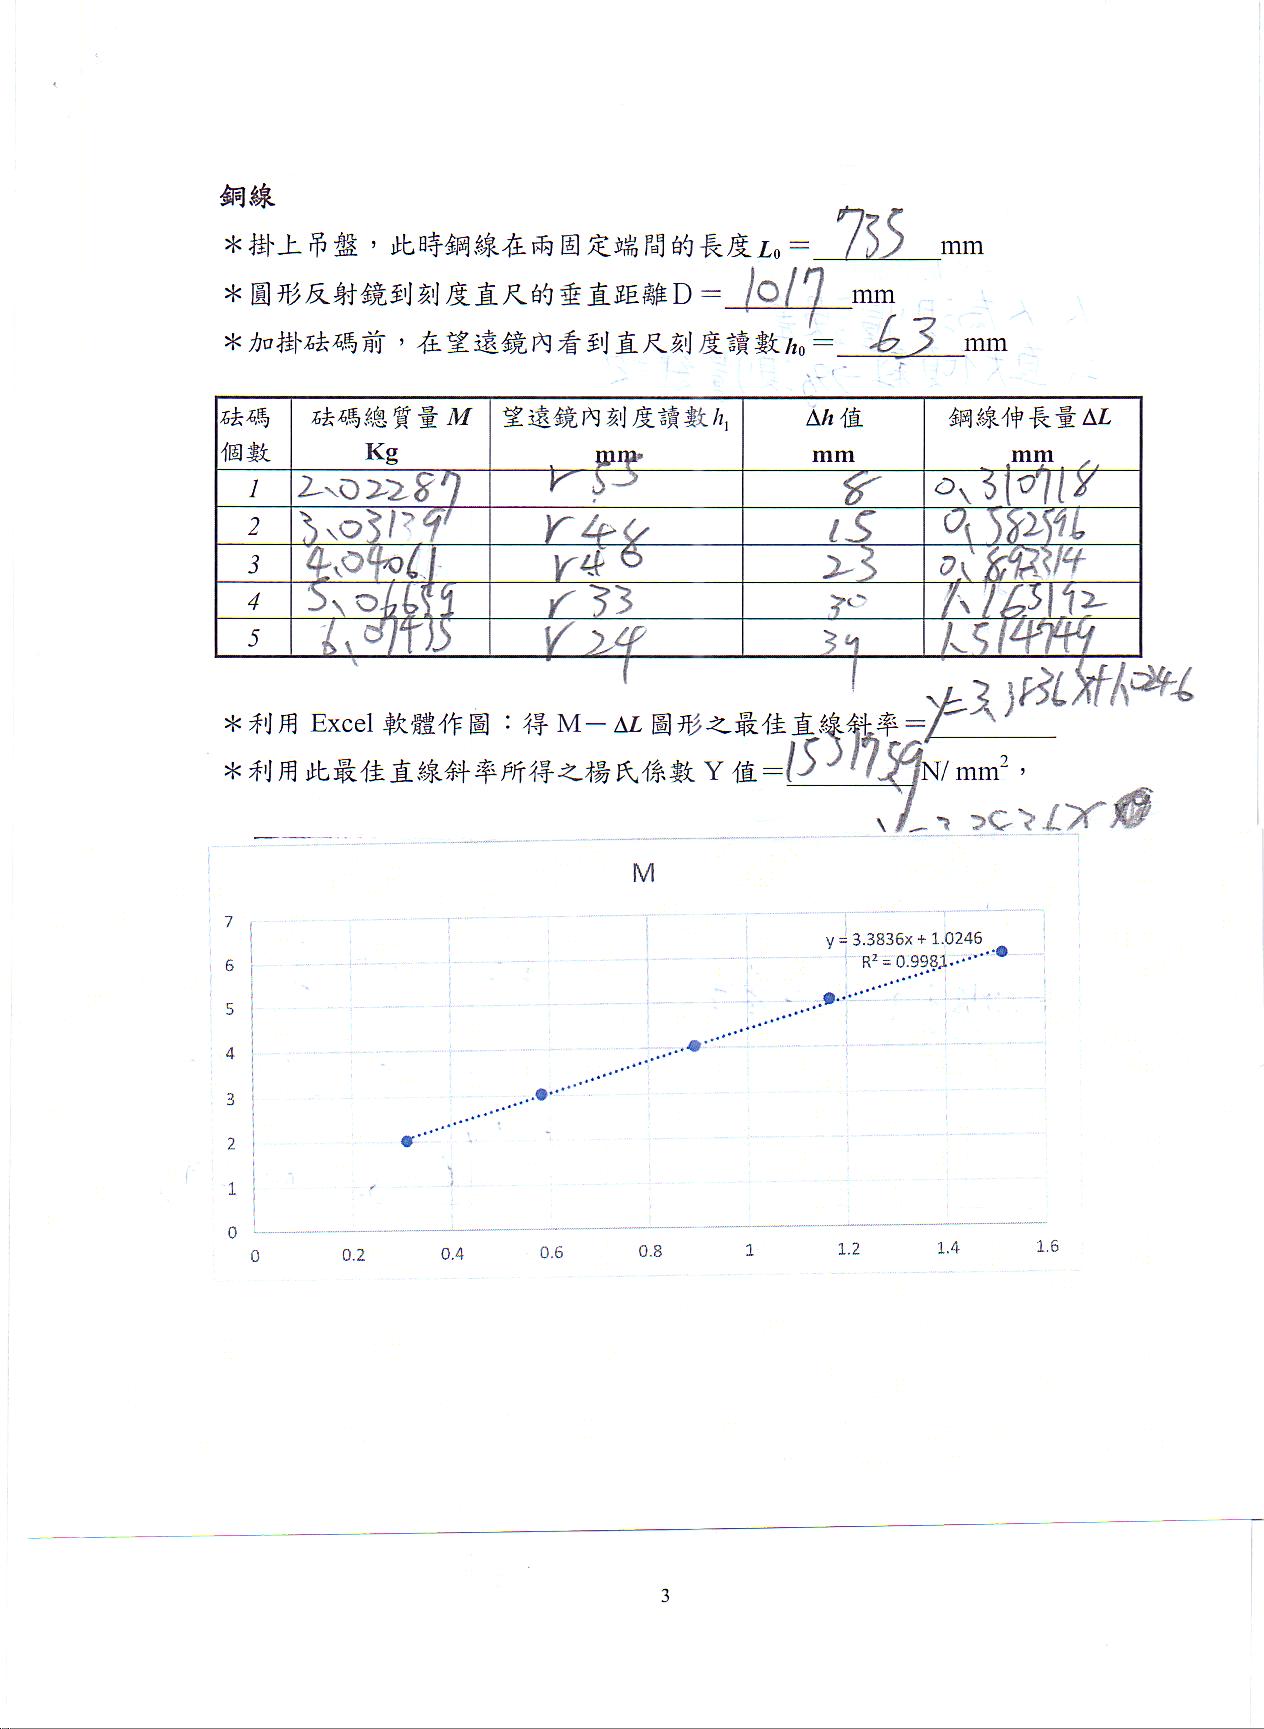 銅線
＊掛上吊盤，此時鋼線在兩固定端間的長度 L0＝ 735 mm
＊圓形反射鏡到刻度直尺的垂直距離D＝ 1017 mm
＊加掛砝碼前，在望遠鏡內看到直尺刻度讀數 h0＝ 63 mm
砝碼個數 砝碼總質量 M Kg 望遠鏡內刻度讀數 h1 mm Δh 值 mm 鋼線伸長量 ΔL mm
1 2.02287 r 55 8 0.310718
2 3.03139 r 48 15 0.582596
3 4.04061 r 40 23 0.893314
4 5.06659 r 33 30 1.165192
5 6.07435 r 24 39 1.514749
＊利用 Excel 軟體作圖：得 M－ΔL 圖形之最佳直線斜率＝ y=3.3836x+1.0246
＊利用此最佳直線斜率所得之楊氏係數 Y 值＝ 1531759 N/ mm2，
M
7
6
5
4
3
2
1
0
y = 3.3836x + 1.0246
R² = 0.9981
0 0.2 0.4 0.6 0.8 1 1.2 1.4 1.6
3